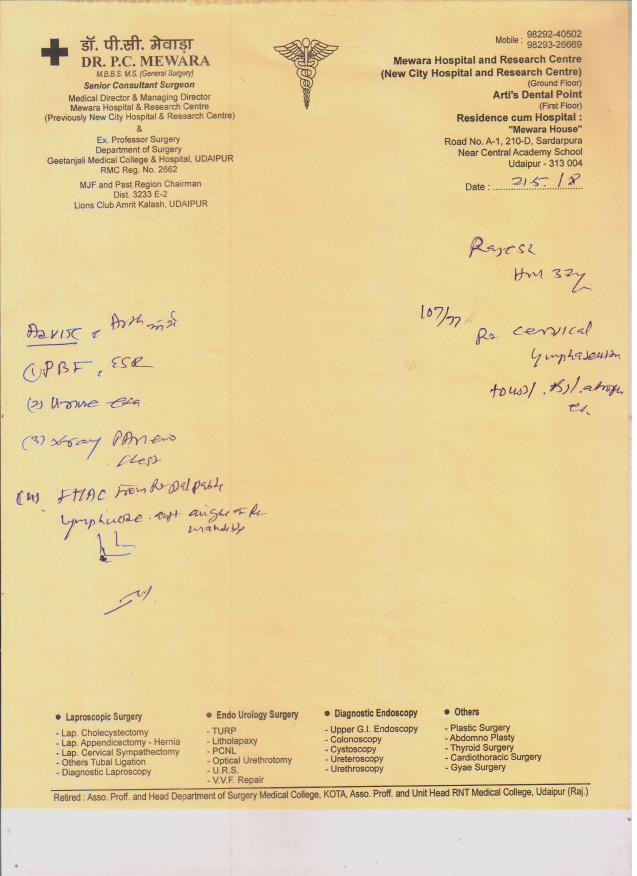 डॉ. पी.सी. मेवाड़ा
DR. P.C. MEWARA
M.B.B.S. M.S. (General Surgery)
Senior Consultant Surgeon
Medical Director & Managing Director
Mewara Hospital & Research Centre
(Previously New City Hospital & Research Centre)
&
Ex. Professor Surgery
Department of Surgery
Geetanjali Medical College & Hospital, UDAIPUR
RMC Reg. No. 2662
MJF and Past Region Chairman
Dist. 3233 E-2
Lions Club Amrit Kalash, UDAIPUR
Mobile : 98292-40502
98293-26669
Mewara Hospital and Research Centre
(New City Hospital and Research Centre)
(Ground Floor)
Arti's Dental Point
(First Floor)
Residence cum Hospital :
"Mewara House"
Road No. A-1, 210-D, Sardarpura
Near Central Academy School
Udaipur - 313 004
Date :
107/77
cervical
(1) PBF, ESR
(2)
(3) Xray PA view
Chest
(4) FNAC from Rt palpable
angle of Rt
mandible
Laproscopic Surgery
- Lap. Cholecystectomy
- Lap. Appendicectomy - Hernia
- Lap. Cervical Sympathectomy
- Others Tubal Ligation
- Diagnostic Laproscopy
Endo Urology Surgery
- TURP
- Litholapaxy
- PCNL
- Optical Urethrotomy
- U.R.S.
- V.V.F. Repair
Diagnostic Endoscopy
- Upper G.I. Endoscopy
- Colonoscopy
- Cystoscopy
- Ureteroscopy
- Urethroscopy
Others
- Plastic Surgery
- Abdomno Plasty
- Thyroid Surgery
- Cardiothoracic Surgery
- Gyae Surgery
Retired : Asso. Proff. and Head Department of Surgery Medical College, KOTA, Asso. Proff. and Unit Head RNT Medical College, Udaipur (Raj.)